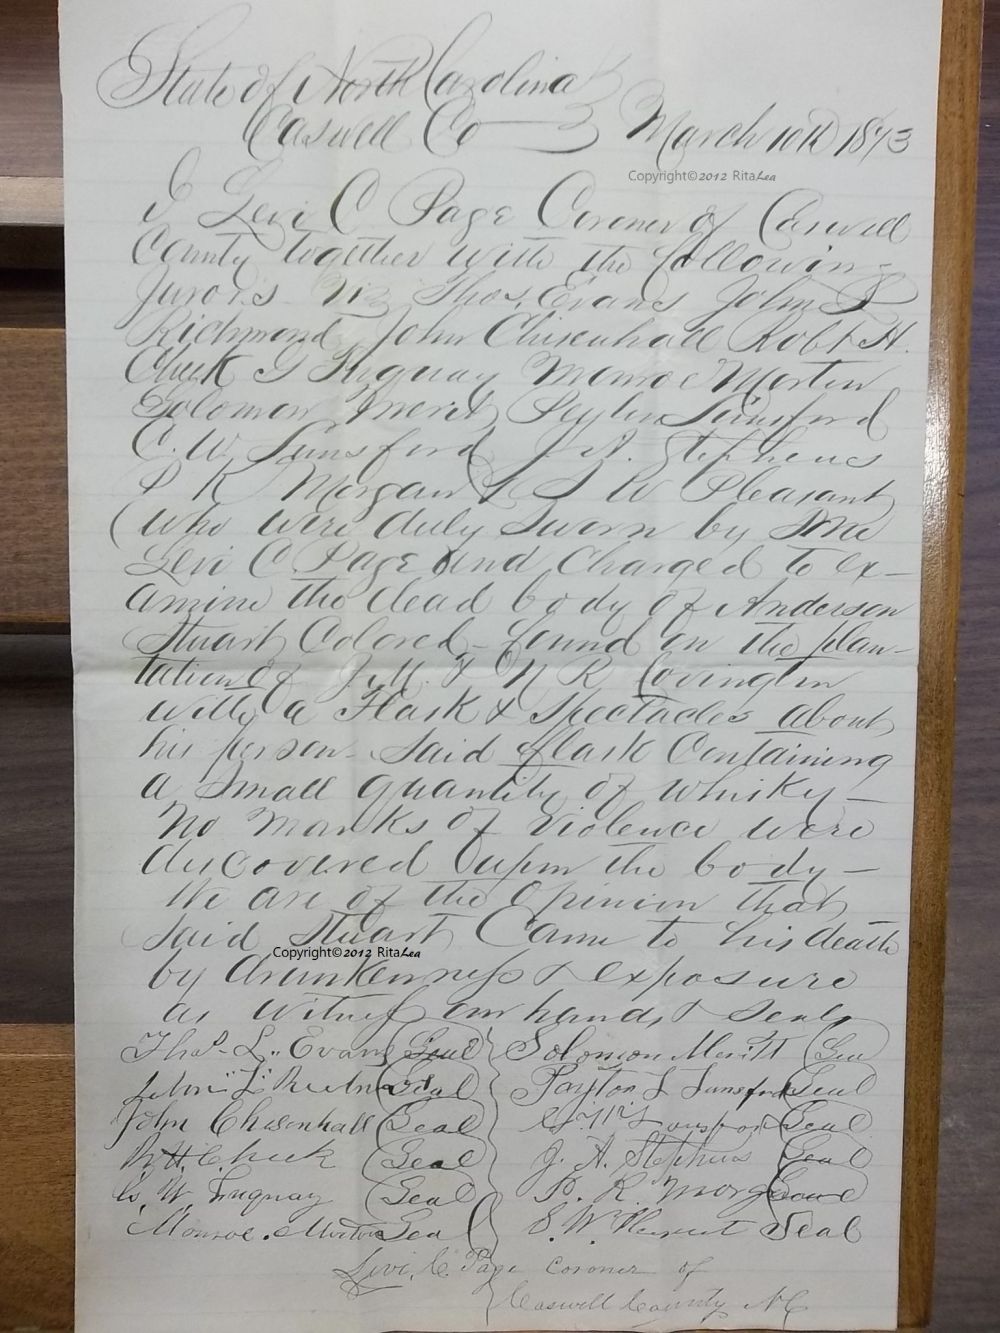 State of North Carolina
Caswell Co March 10th 1873
Copyright©2012 RitaLea
I Levi C Page Coroner of Caswell
County together with the following
Jurors Viz Thos. Evans John L
Richmond John Chisenhall Robt H.
Cheek G Fuquay Monroe Morten
Solomon Merit Peyton Lunsford
C. W. Lunsford J. A. Stephens
P K Morgan & S W Pleasant
who were duly Sworn by Me
Levi C Page And Charged to ex-
amine the dead body of Anderson
Stuart Colored - found on the plan-
tation of J. M. & N R Covington
with a Flask & Spectacles about
his person - Said flask Containing
a Small quantity of whisky -
No Marks of Violence were
discovered upon the body -
We are of the Opinion that
Said Stuart Came to his death
Copyright©2012 RitaLea
by drunkenness & exposure
as witness our hands & Seals
Thos. L. Evans Seal Solomon Meritt Seal
John L Seal Payton L Lunsford Seal
John Chesenhall Seal Lunsford Seal
R. H. Cheek Seal J. A. Stephens Seal
G. W. Fuquay Seal P. K. Morgan Seal
Monroe Morton Seal S. W. Pleasant Seal
Levi C. Page Coroner of
Caswell County NC